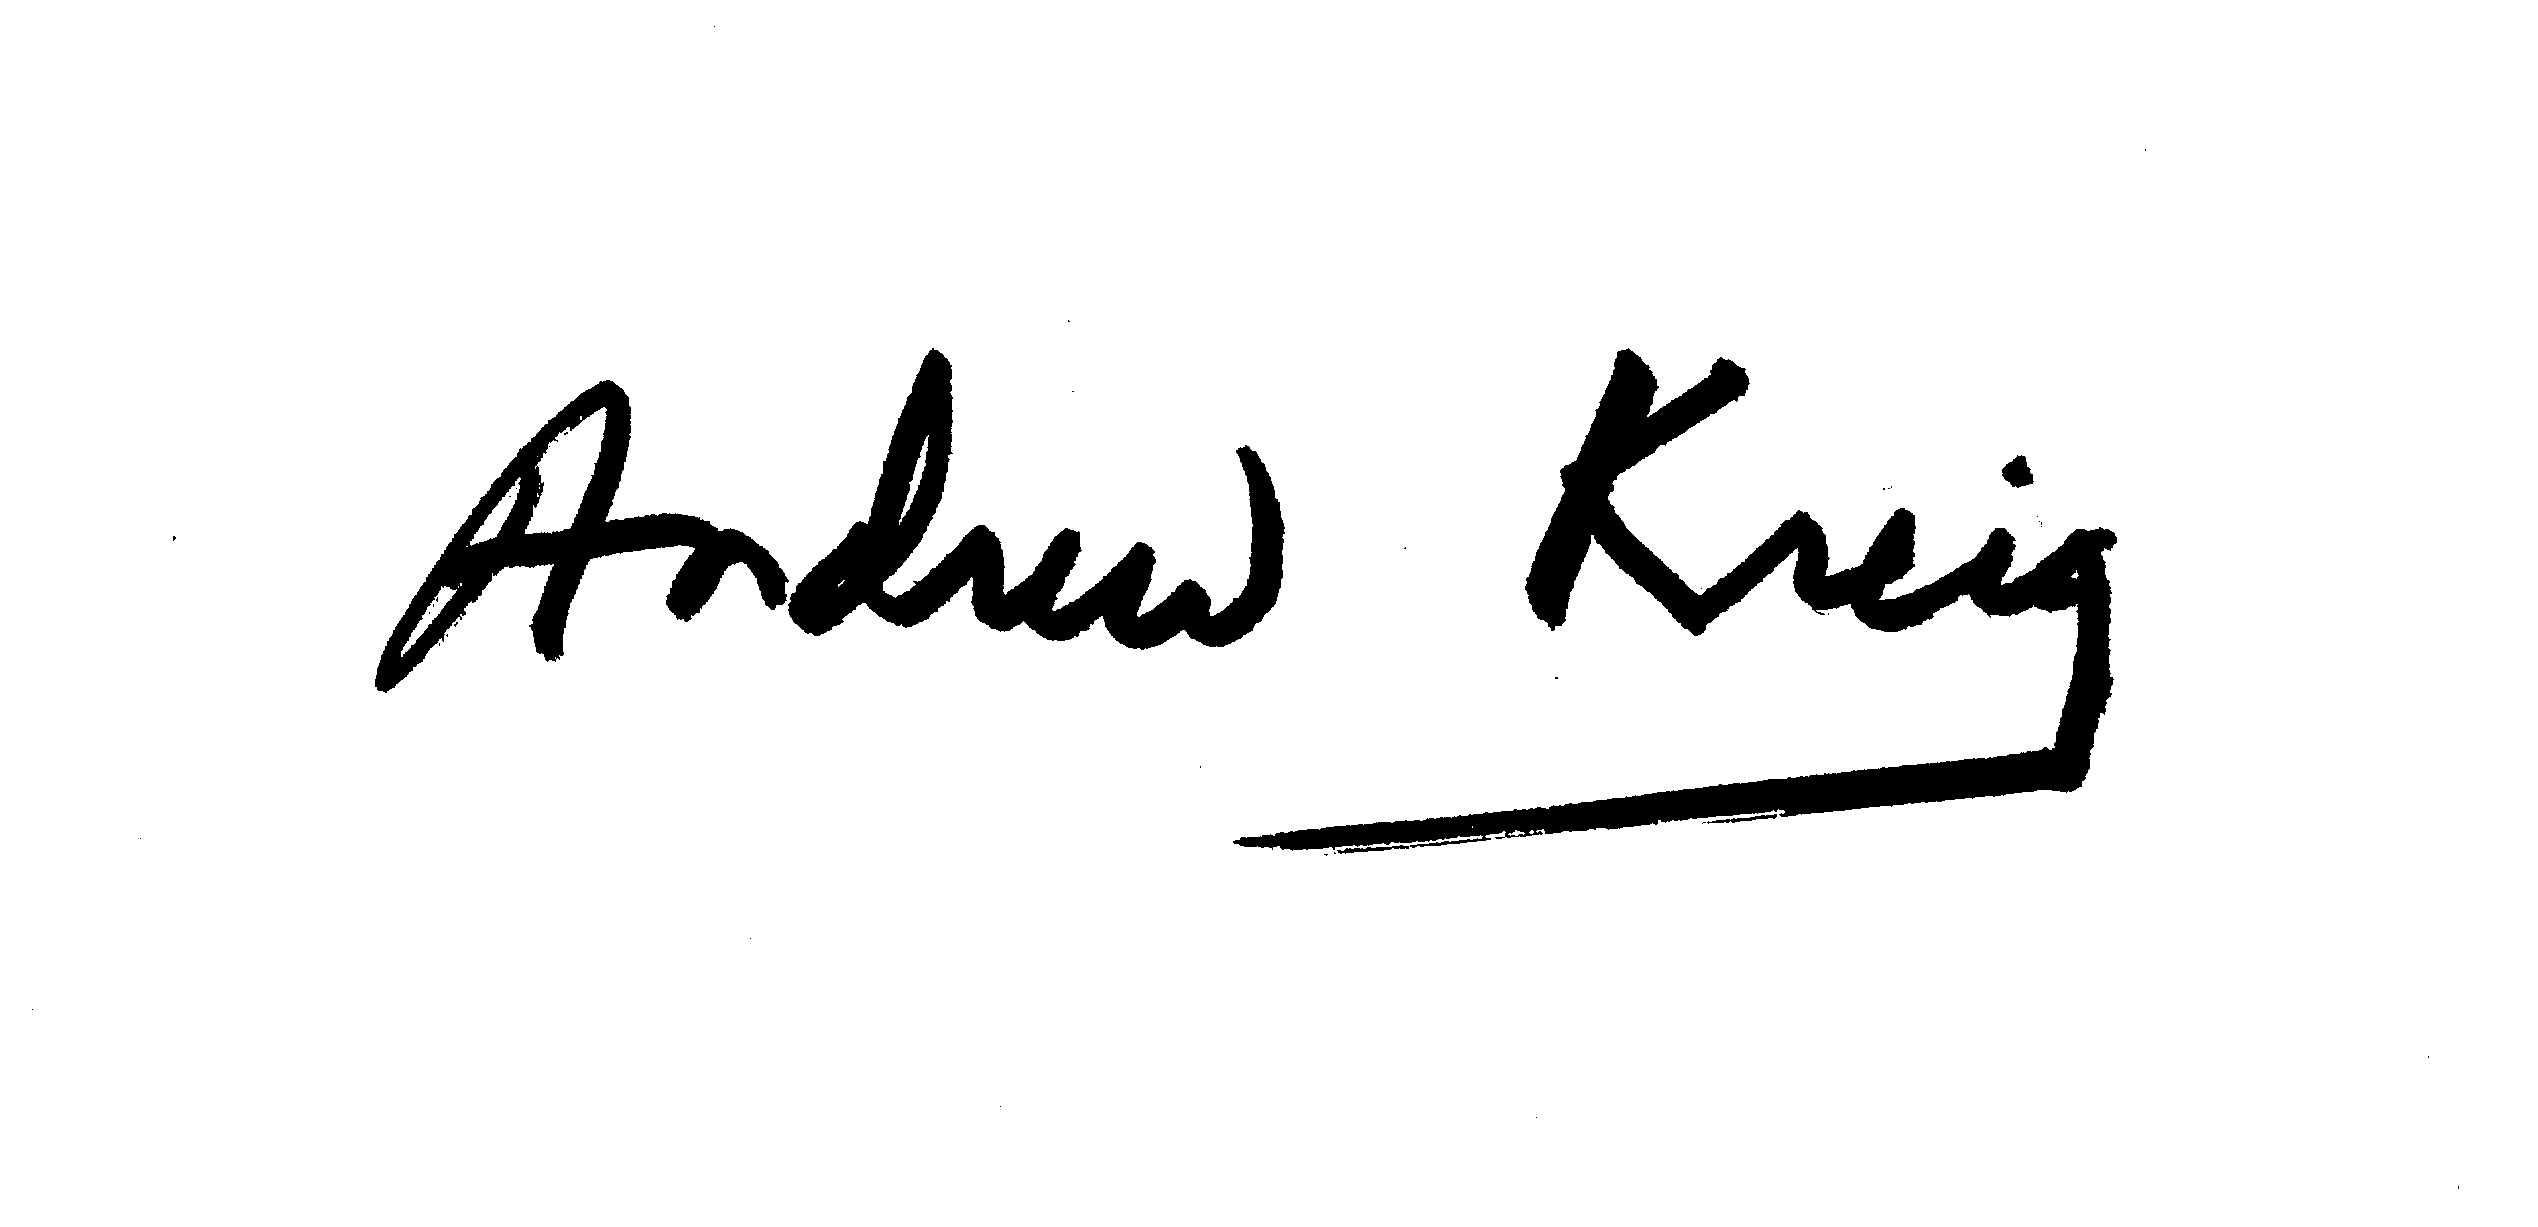 Andrew Kreig